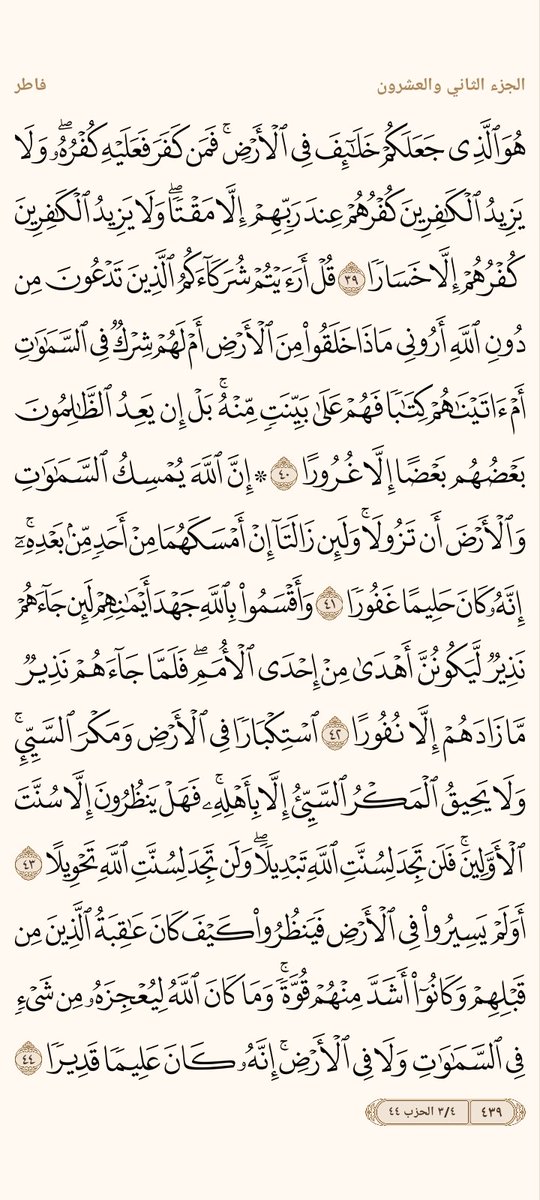 الجزء الثاني والعشرون
فاطر
هُوَ ٱلَّذِى جَعَلَكُمْ خَلَٰٓئِفَ فِى ٱلْأَرْضِ ۚ فَمَن كَفَرَ فَعَلَيْهِ كُفْرُهُۥ ۖ وَلَا
يَزِيدُ ٱلْكَٰفِرِينَ كُفْرُهُمْ عِندَ رَبِّهِمْ إِلَّا مَقْتًا ۖ وَلَا يَزِيدُ ٱلْكَٰفِرِينَ
كُفْرُهُمْ إِلَّا خَسَارًا ٣٩ قُلْ أَرَءَيْتُمْ شُرَكَآءَكُمُ ٱلَّذِينَ تَدْعُونَ مِن
دُونِ ٱللَّهِ أَرُونِى مَاذَا خَلَقُوا۟ مِنَ ٱلْأَرْضِ أَمْ لَهُمْ شِرْكٌ فِى ٱلسَّمَٰوَٰتِ
أَمْ ءَاتَيْنَٰهُمْ كِتَٰبًا فَهُمْ عَلَىٰ بَيِّنَتٍ مِّنْهُ ۚ بَلْ إِن يَعِدُ ٱلظَّٰلِمُونَ
بَعْضُهُم بَعْضًا إِلَّا غُرُورًا ٤٠ ۞ إِنَّ ٱللَّهَ يُمْسِكُ ٱلسَّمَٰوَٰتِ
وَٱلْأَرْضَ أَن تَزُولَا ۚ وَلَئِن زَالَتَآ إِنْ أَمْسَكَهُمَا مِنْ أَحَدٍ مِّنۢ بَعْدِهِۦٓ ۚ
إِنَّهُۥ كَانَ حَلِيمًا غَفُورًا ٤١ وَأَقْسَمُوا۟ بِٱللَّهِ جَهْدَ أَيْمَٰنِهِمْ لَئِن جَآءَهُمْ
نَذِيرٌ لَّيَكُونُنَّ أَهْدَىٰ مِنْ إِحْدَى ٱلْأُمَمِ ۖ فَلَمَّا جَآءَهُمْ نَذِيرٌ
مَّا زَادَهُمْ إِلَّا نُفُورًا ٤٢ ٱسْتِكْبَارًا فِى ٱلْأَرْضِ وَمَكْرَ ٱلسَّيِّئِ ۚ
وَلَا يَحِيقُ ٱلْمَكْرُ ٱلسَّيِّئُ إِلَّا بِأَهْلِهِۦ ۚ فَهَلْ يَنظُرُونَ إِلَّا سُنَّتَ
ٱلْأَوَّلِينَ ۚ فَلَن تَجِدَ لِسُنَّتِ ٱللَّهِ تَبْدِيلًا ۖ وَلَن تَجِدَ لِسُنَّتِ ٱللَّهِ تَحْوِيلًا ٤٣
أَوَلَمْ يَسِيرُوا۟ فِى ٱلْأَرْضِ فَيَنظُرُوا۟ كَيْفَ كَانَ عَٰقِبَةُ ٱلَّذِينَ مِن
قَبْلِهِمْ وَكَانُوٓا۟ أَشَدَّ مِنْهُمْ قُوَّةً ۚ وَمَا كَانَ ٱللَّهُ لِيُعْجِزَهُۥ مِن شَىْءٍ
فِى ٱلسَّمَٰوَٰتِ وَلَا فِى ٱلْأَرْضِ ۚ إِنَّهُۥ كَانَ عَلِيمًا قَدِيرًا ٤٤
٤٣٩ ٣/٤ الحزب ٤٤